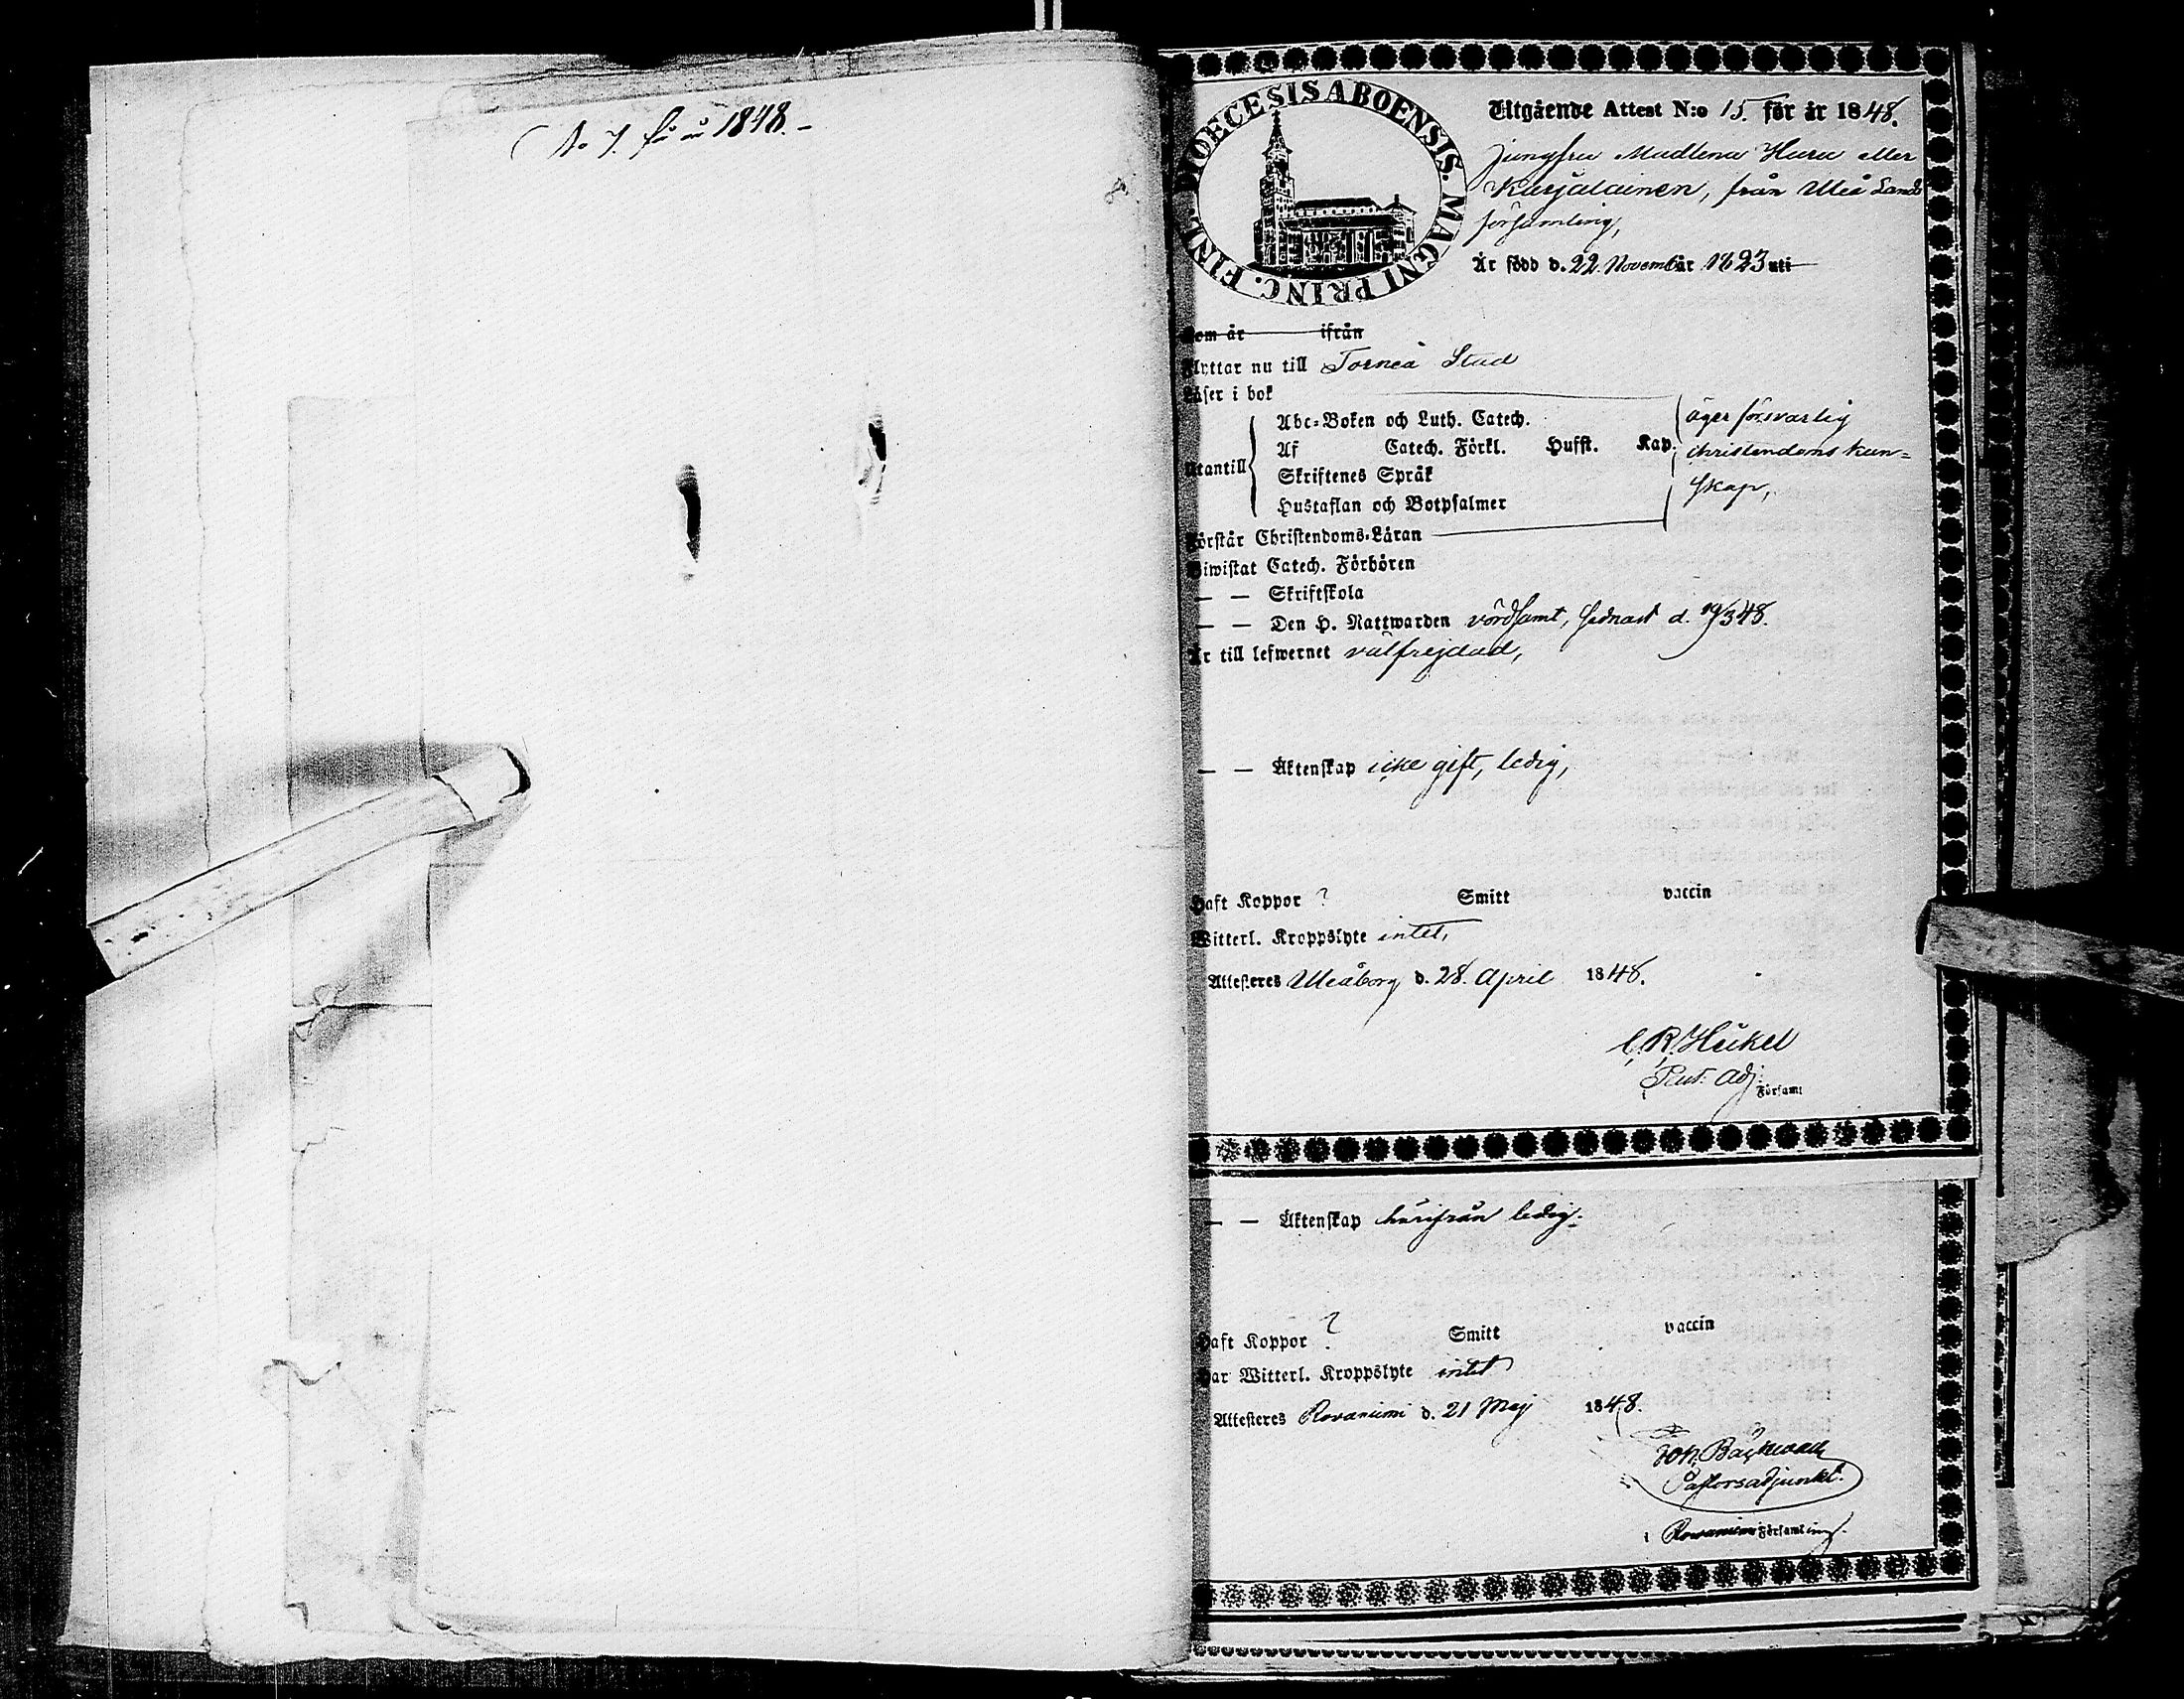 No 7. för år 1848.
DIOECESIS ABOENSIS. MAGNI PRINC. FINL.
Utgående Attest N:o 15. för år 1848.
Jungfru Madlena Huru eller
Karjalainen, från Uleå Lands
församling,
Är född d. 22. November 1823 uti
Som år ifrån
Flyttar nu till Torneå Stad
Läser i bok
Abc-Boken och Luth. Catech.
Af Catech. Förkl. Husst. Kap.
Utantill
Skriftenes Språk
Hustaflan och Botpsalmer
äger försvarlig
christendoms kun-
skap,
Förstår Christendoms-Läran
Biwistat Catech. Förhören
— — Skriftskola
— — Den H. Nattwarden vördsamt, sednast d. 19/3 48.
Är till lefwernet välfrejdad,
— — Äktenskap icke gift, ledig,
Haft Koppor ? Smitt vaccin
Witterl. Kroppslyte intet,
Attesteres Uleåborg d. 28. April 1848.
C. R. Heikel
Past: Adj:
i Församl
— — Äktenskap härifrån ledig.
Haft Koppor ? Smitt vaccin
Har Witterl. Kroppslyte intet
Attesteres Rovaniemi d. 21 Maj 1848.
Joh. Bäckwall
Pastorsadjunkt.
i Rovaniemi Församling.